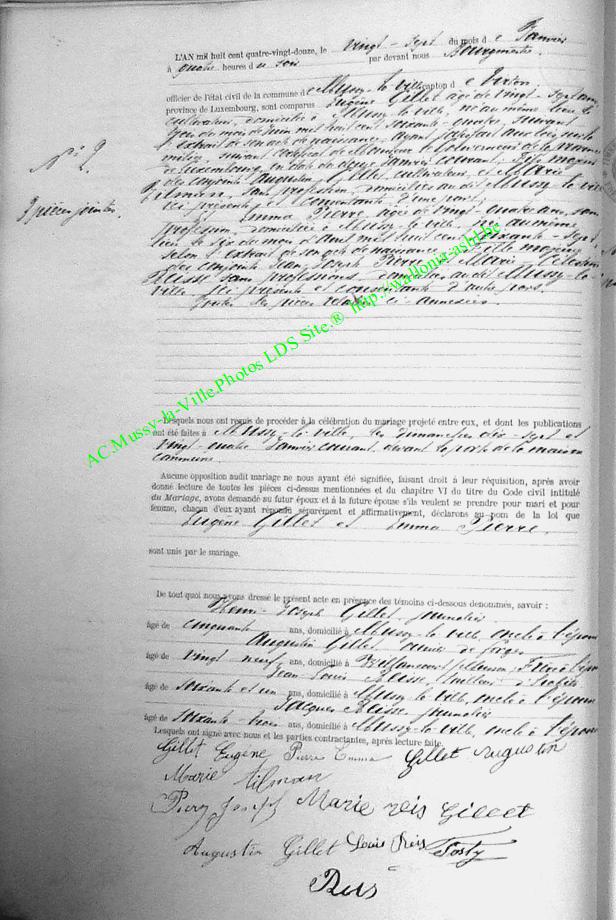 L'AN mil huit cent quatre-vingt-douze, le vingt-sept du mois de Janvier
à quatre heures du soir par devant nous Bourgmestre
officier de l'état civil de la commune de Mussy-la-ville canton de Virton
province de Luxembourg, sont comparus Eugène Gillet âgé de vingt-sept ans
cultivateur, domicilié à Mussy-la-ville, né au même lieu le
du mois de Juin mil huit cent soixante-quatre, suivant
l'extrait de son acte de naissance, ayant satisfait aux lois sur la
milice, suivant certificat de Monsieur le Gouverneur de la province
de Luxembourg, en date du douze Janvier courant; fils majeur
des conjoints Augustin Gillet cultivateur, et Marie
Tilman, sans profession, domiciliés au dit Mussy-la-ville
ici présents et consentants d'une part;
N° 2.
3 pièces jointes.
Et Emma Pierre, âgée de vingt-quatre ans, sans
profession, domiciliée à Mussy-la-ville, née au même
lieu le six du mois d'Août mil huit cent soixante-sept,
selon l'extrait de son acte de naissance, fille majeure
des conjoints Jean Joseph Pierre et Marie Célestine
Reisse sans professions, domiciliés au dit Mussy-la-
ville, ici présents et consentants d'autre part.
Toutes les pièces relatées ci-annexées.
AC.Mussy-la-Ville.Photos LDS Site.® http://wallonia-asbl.be
Lesquels nous ont requis de procéder à la célébration du mariage projeté entre eux, et dont les publications
ont été faites à Mussy-la-ville, les dimanches dix-sept et
vingt-quatre Janvier courant, devant la porte de la maison
commune.
Aucune opposition audit mariage ne nous ayant été signifiée, faisant droit à leur réquisition, après avoir
donné lecture de toutes les pièces ci-dessus mentionnées et du chapitre VI du titre du Code civil intitulé
du Mariage, avons demandé au futur époux et à la future épouse s'ils veulent se prendre pour mari et pour
femme, chacun d'eux ayant répondu séparément et affirmativement, déclarons au nom de la loi que
Eugène Gillet et Emma Pierre.
sont unis par le mariage.
De tout quoi nous avons dressé le présent acte en présence des témoins ci-dessous dénommés, savoir :
Henri-Joseph Gillet, journalier
âgé de cinquante ans, domicilié à Mussy-la-ville, oncle à l'époux
Augustin Gillet, ouvrier de forges
âgé de vingt neuf ans, domicilié à frère à l'époux
Jean-Louis Reisse, tailleur d'habits
âgé de soixante et un ans, domicilié à Mussy-la-ville, oncle à l'épouse
Jacques Reisse, journalier
âgé de soixante-trois ans, domicilié à Mussy-la-ville, oncle à l'épouse
Lesquels ont signé avec nous et les parties contractantes, après lecture faite.
Gillet Eugène Pierre Emma Gillet Augustin
Marie tilman
Joseph Marie reis Gillet
Augustin Gillet Louis Reis
Reis